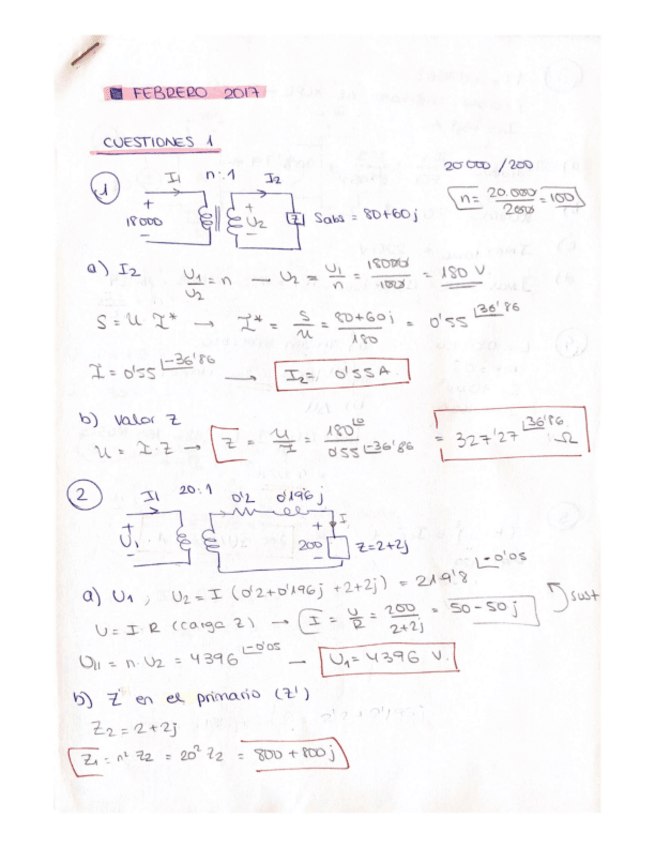 FEBRERO 2017
CUESTIONES 1
20000 / 200
n = 20.000 / 200 = 100
1
I1 n:1 I2
+ 18000 -
+ U2 -
Z
Sabs = 80+60j
a) I2 U1/U2 = n → U2 = U1/n = 18000/100 = 180 V
S = U · I* → I* = S/U = 80+60j/180 = 0'55 |36'86
I = 0'55 |-36'86 → I2 = 0'55 A
b) Valor Z
U = I · Z → Z = U/I = 180|0 / 0'55 |-36'86 = 327'27 |36'86 Ω
2
I1 20:1 0'2 0'196 j
+ U1 -
+ 200 -
I
Z=2+2j
a) U1 , U2 = I (0'2+0'196j +2+2j) = 219'8 |-0'05
U = I · R (carga 2) → I = U/R = 200/2+2j = 50-50j
sust
U11 = n · U2 = 4396 |-0'05 → U1 = 4396 V.
b) Z en el primario (Z')
Z2 = 2+2j
Z1 = n² Z2 = 20² Z2 = 800 + 800j